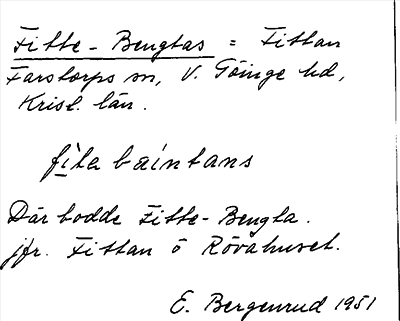 Fitte-Bengtas = Fittan
Farstorps sn, V. Göinge hd,
Krist. län.
fìta baíntans
Där bodde Fitte-Bengta.
jfr. Fittan ô Rövahuset.
E. Bergenrud 1951